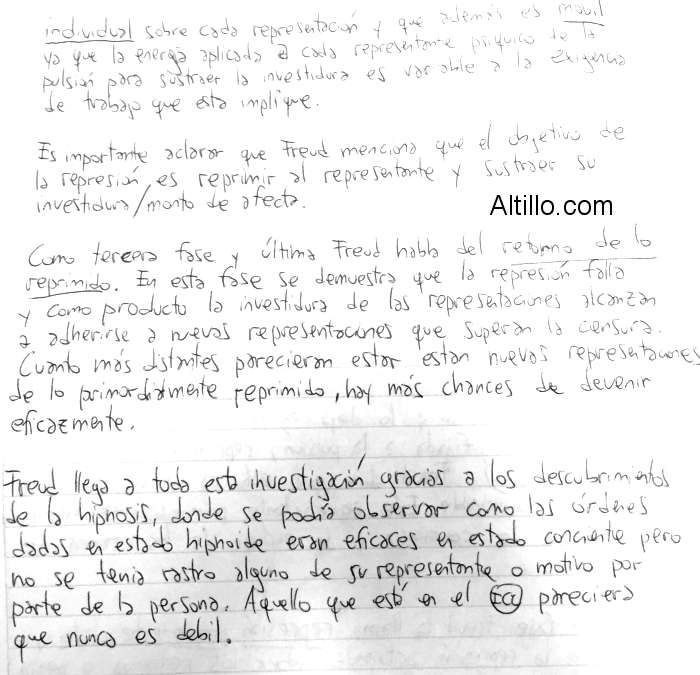 individual sobre cada representación y que además es movil
ya que la energía aplicada a cada representante psíquico de la
pulsión para sustraer la investidura es variable a la exigencia
de trabajo que esta implique.
Es importante aclarar que Freud menciona que el objetivo de
la represión es reprimir al representante y sustraer su
investidura/monto de afecto.
Altillo.com
Como tercera fase y última Freud habla del retorno de lo
reprimido. En esta fase se demuestra que la represión falla
y como producto la investidura de las representaciones alcanzan
a adherirse a nuevas representaciones que superan la censura.
Cuanto más distantes parecieran estar estan nuevas representaciones
de lo primordialmente reprimido, hay más chances de devenir
eficazmente.
Freud llega a toda esta investigación gracias a los descubrimientos
de la hipnosis, donde se podía observar como las órdenes
dadas en estado hipnoide eran eficaces en estado conciente pero
no se tenia rastro alguno de su representante o motivo por
parte de la persona. Aquello que está en el Icc pareciera
que nunca es debil.